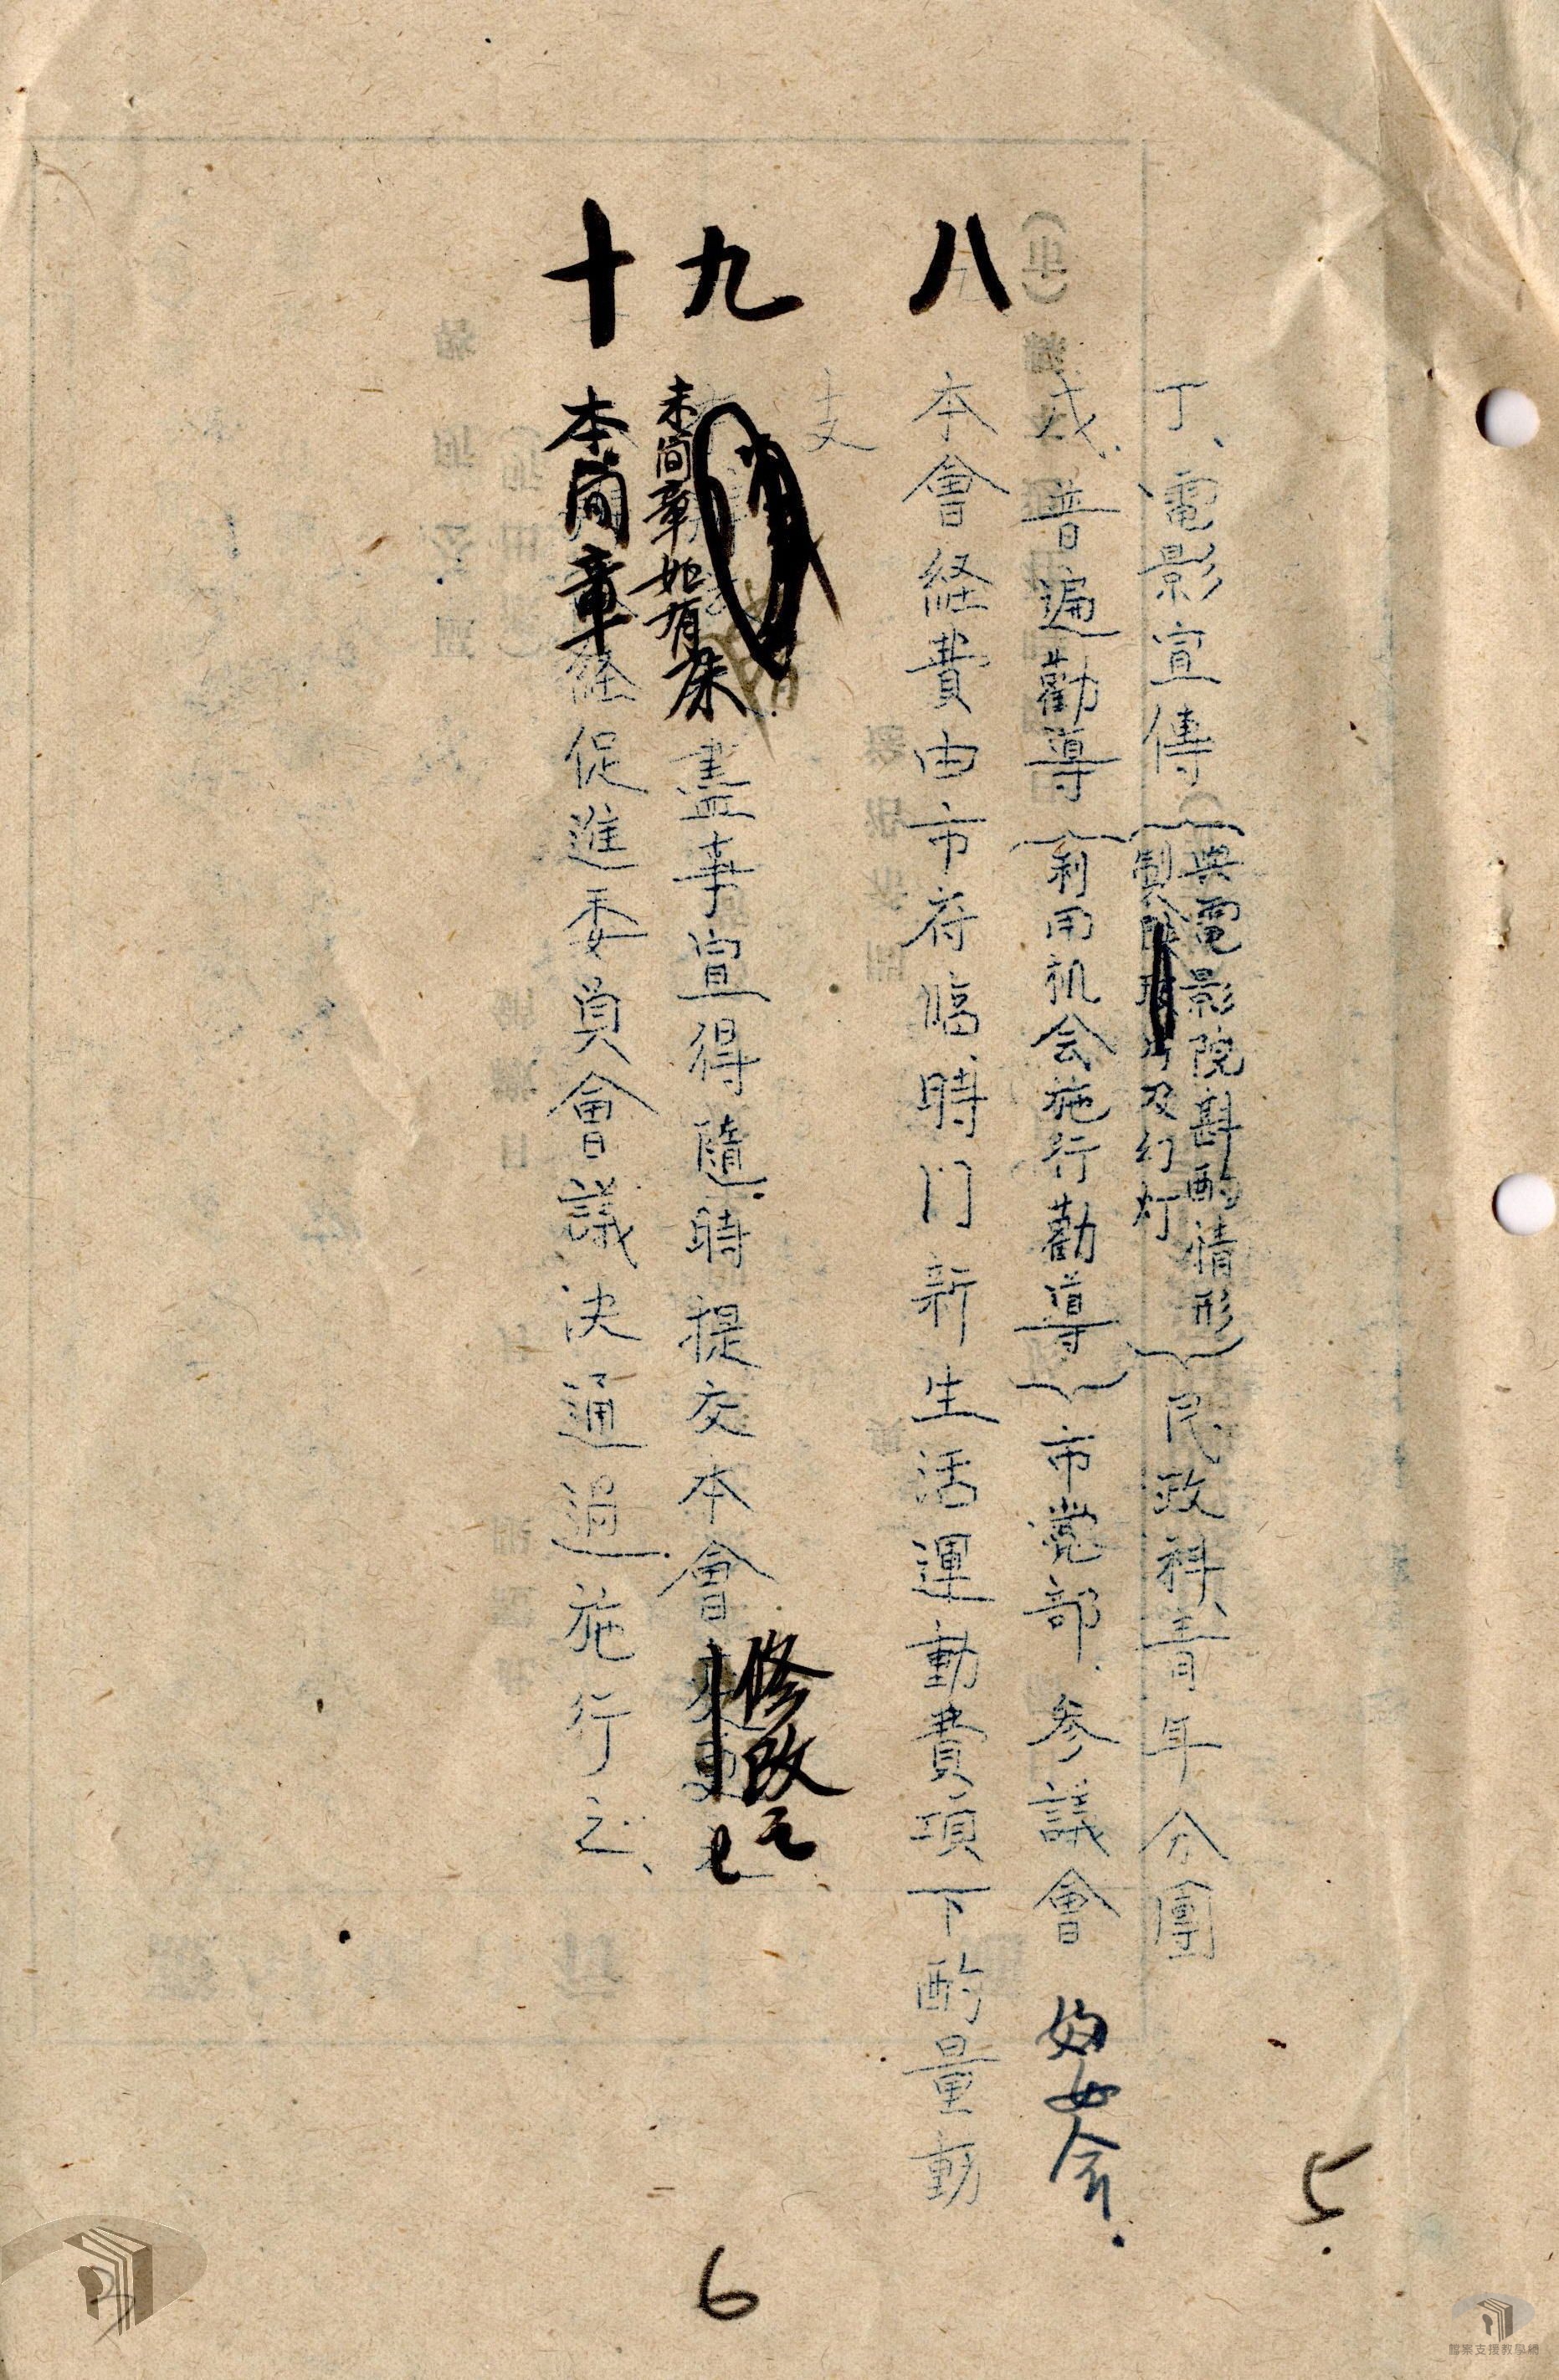 丁、電影宣傳(與電影院斟酌情形製 片及幻灯)民政科、青年分團
戊、普遍勸導(利用机会施行勸導)市党部.参議會 婦女会.
八 本會経費由市府臨時门新生活運動費項下酌量動
支
九 本簡章如有未盡事宜得隨時提交本會修改之
十 本簡章経促進委員會議決通過施行之、
5.
6
檔案支援教學網